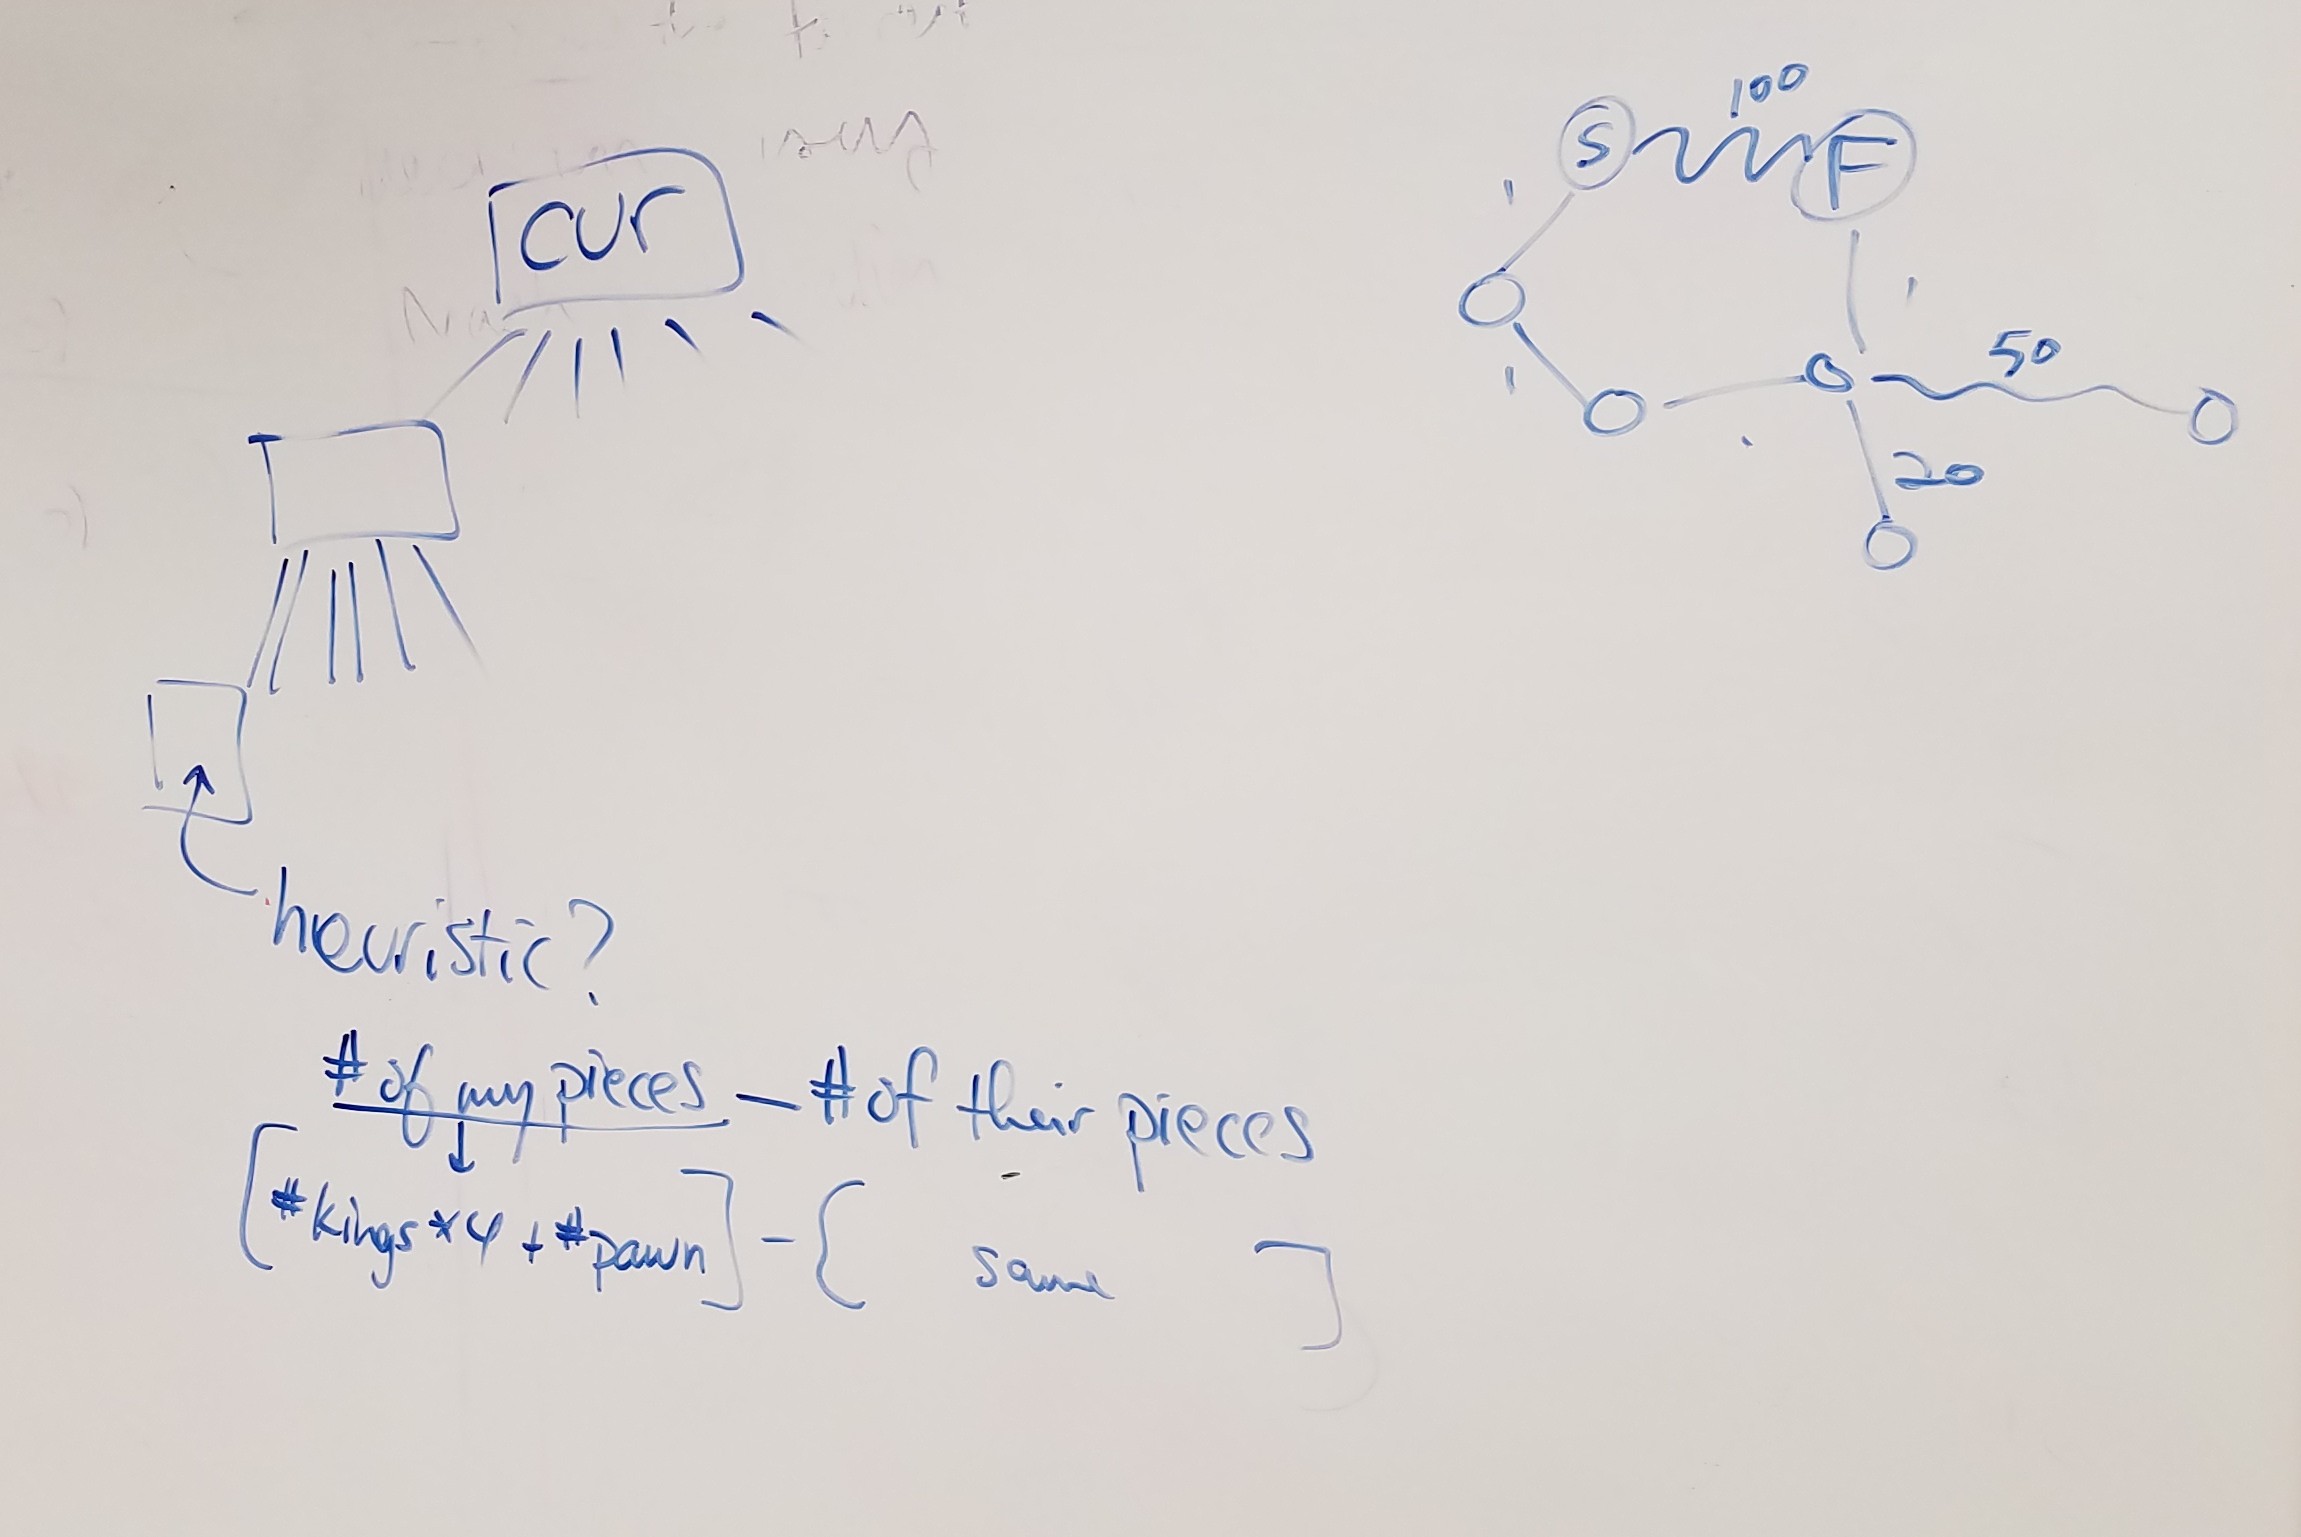 cur
heuristic?
# of my pieces - # of their pieces
[#kings*4 + #pawn] - [ same ]
100
S F
1
1
50
1
1
20